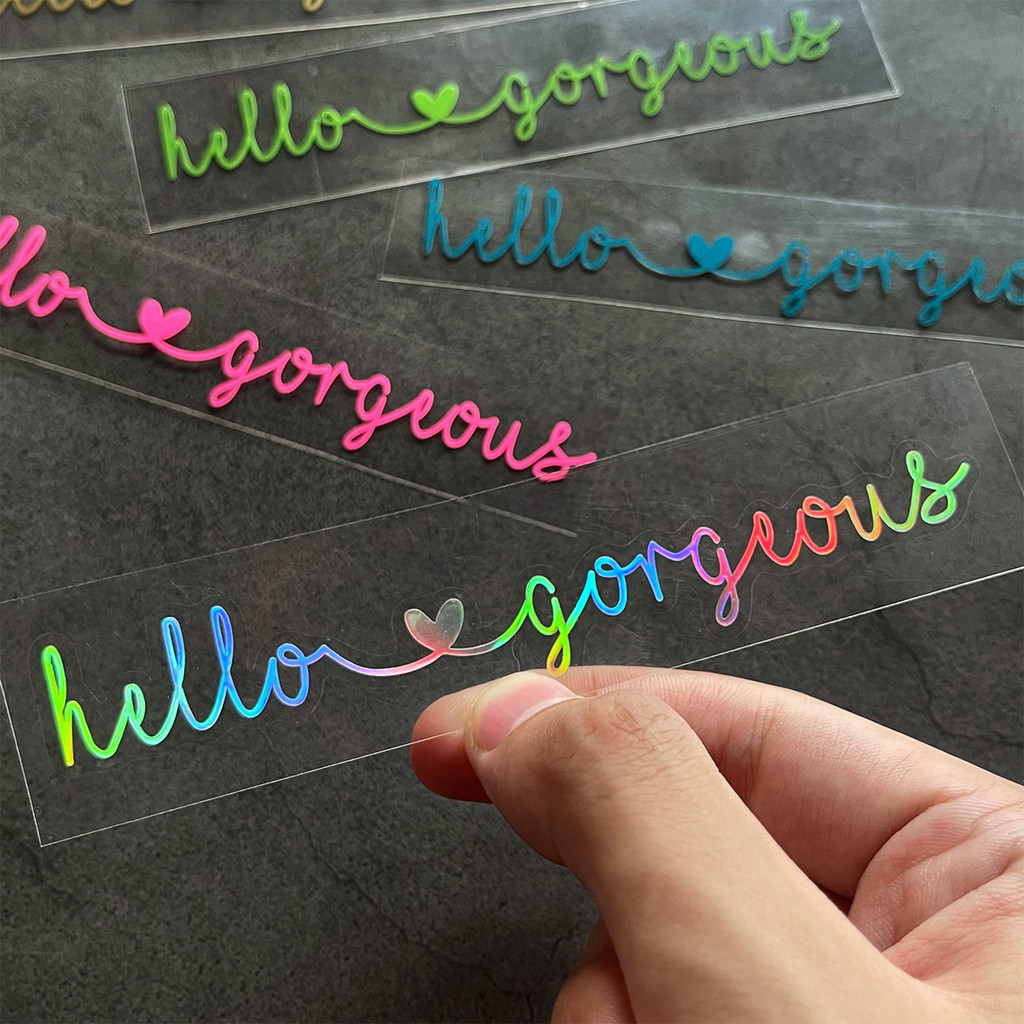 hello gorgeous
hello gorgeous
llo gorgeous
hello gorgeous